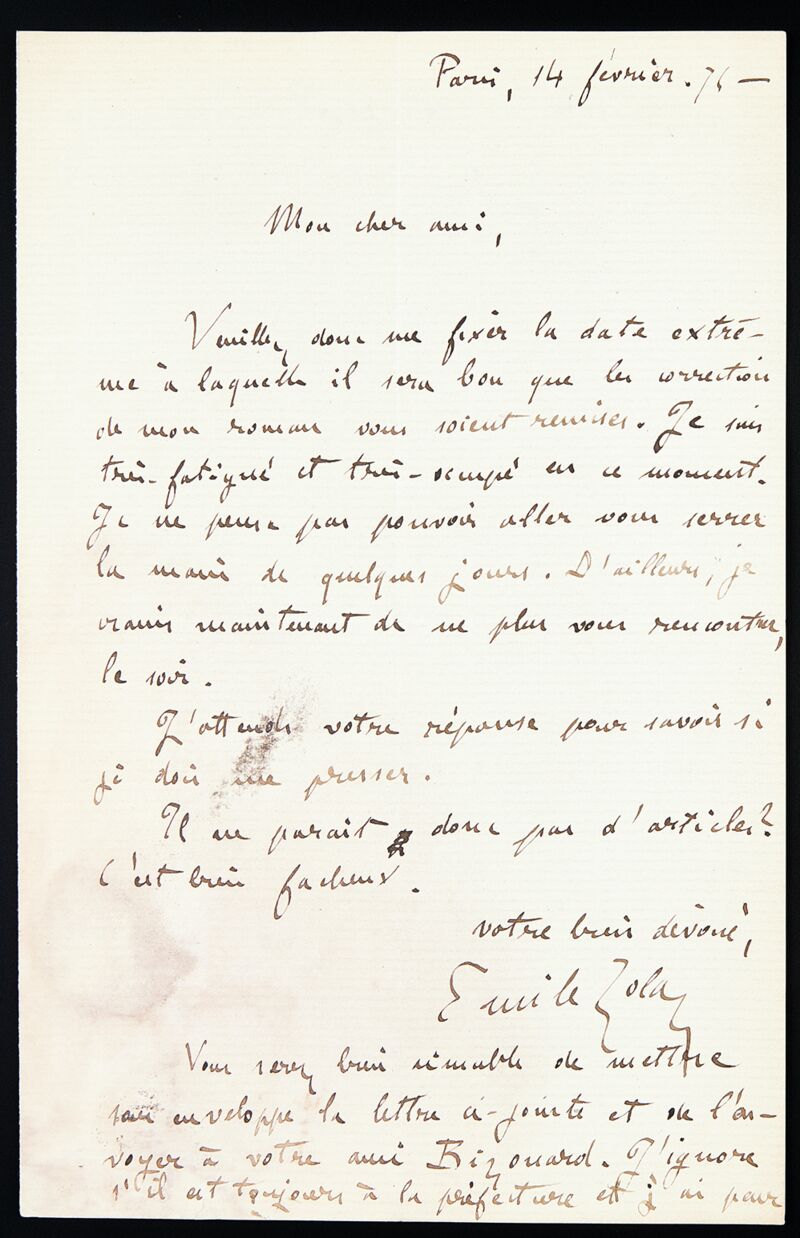 Paris, 14 février. 76 —
Mon cher ami,
Veuillez donc me fixer la date extrê-
me à laquelle il sera bon que les correction
de mon roman vous soient remises. Je suis
très-fatigué et très-occupé en ce moment.
Je ne pense pas pouvoir aller vous serrer
la main de quelques jours. D'ailleurs, je
crains maintenant de ne plus vous rencontrer,
le soir.
J'attends votre réponse pour savoir si
je dois me presser.
Il ne parait donc pas d'articles?
C'est bien facheux.
Votre bien dévoué,
Emile Zola
Vous serez bien aimable de mettre
sous enveloppe la lettre ci-jointe et de l'en-
voyer à votre ami Bizouard. J'ignore
s'il est toujours à la préfecture et j'ai peur